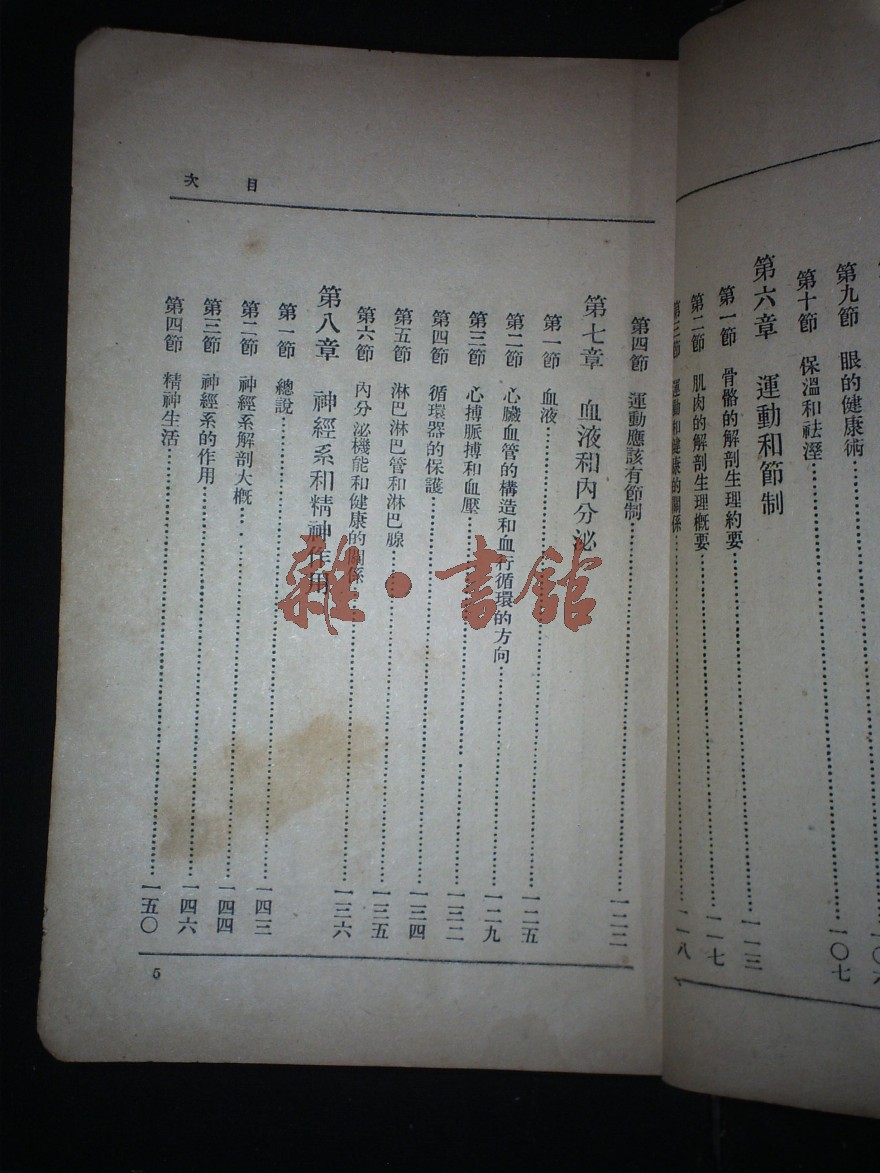 第九節　眼的健康術
第十節　保溫和祛溼……一〇七
第六章　運動和節制
第一節　骨骼的解剖生理約要……一一三
第二節　肌肉的解剖生理概要……一一七
第三節　運動和健康的關係……一一八
目次
第四節　運動應該有節制……一二二
第七章　血液和內分泌
第一節　血液……一二五
第二節　心臟血管的構造和血行循環的方向……一二九
第三節　心搏脈搏和血壓……一三二
第四節　循環器的保護……一三四
第五節　淋巴淋巴管和淋巴腺……一三五
第六節　內分泌機能和健康的關係……一三六
第八章　神經系和精神作用
第一節　總說……一四三
第二節　神經系解剖大概……一四四
第三節　神經系的作用……一四六
第四節　精神生活……一五〇
5
雜·書館